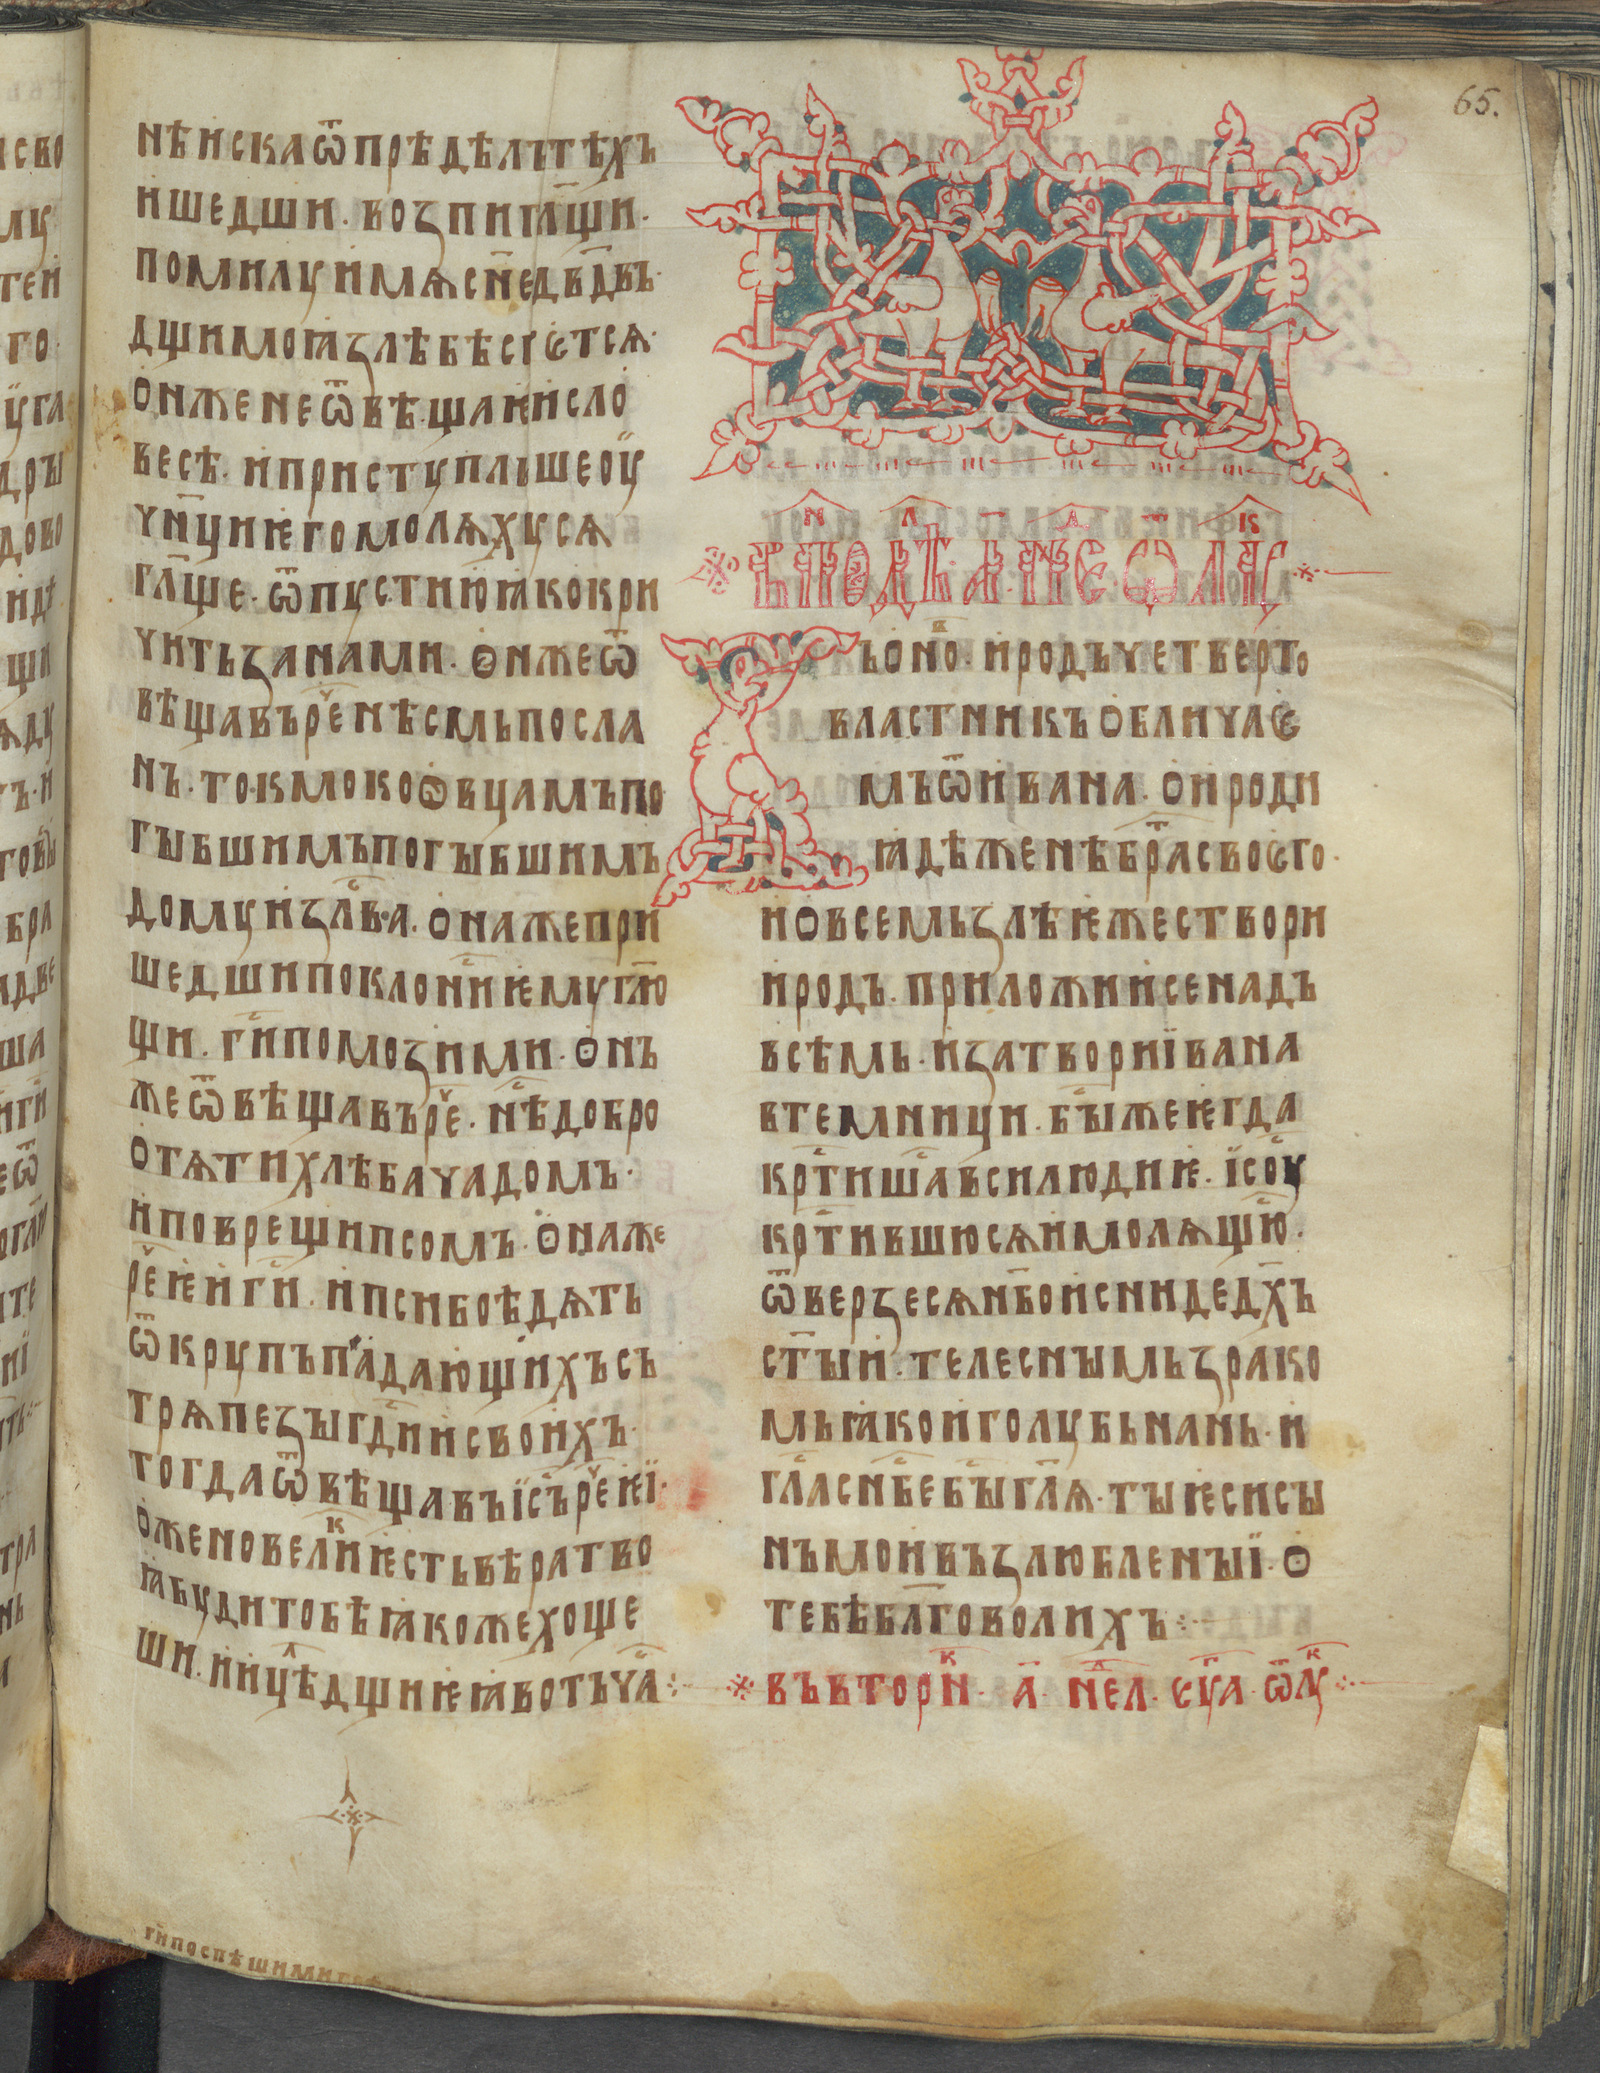 65.
нѣискаѿпрѣдѣлътѣхъ
ишедши. возпигл҃щи.
помилꙋимѧсн҃едв҃двъ.
дщимоꙗзлѣбѣсꙋѥтсѧ.
ѻнженеѿвѣщаѥисло
весѣ. ипристꙋпльшеоу
ꙋчн҃циѥгомолѧхꙋсѧ
гл҃ще. ѿпꙋстиюꙗкокри
читьзанами. ѻнжеѿ
вѣщавърⷱ҇енѣсмьпосла
нъ. токмокоѻвцамъпо
гыбшимъпогыбшимъ
домꙋизл҃ва. онажепри
шедшипоклониⷭ҇ѥмꙋгл҃ю
щи. гⷭ҇ипомозими. ѻнъ
жеѿвѣщавърⷱ҇е. нⷭ҇ѣдобро
отѧтихлѣбачадомъ.
иповрещипсомъ. ѻнаже
рⷱ҇еѥигⷭ҇и. ипсибоѣдѧть
ѿкрꙋпъпадающихъсъ
трѧпезыгдⷭ҇иисвоихъ.
тогдаѿвѣщавъїсⷭ҇ърⷱ҇еѥї.
ѻженовелиⷦ҇ѥстьвѣратво
ꙗбꙋдитобѣꙗкожехоще
ши. ииц҃ѣⷧ҇дщиѥꙗвотъчⷭ҇а
гⷭ҇ипоспѣшими
вп҃оⷩ҇дѣⷧ҇. л҃. нⷣ҇е ѿ лⷦ҇ꙋ
ъоноⷡ҇. иродъчетверто
властникъобличаѥ
мъѿивана. оироди
ꙗдѣженѣбраⷮ҇своѥго.
иовсемьзлѣѥжествори
иродъ. приложиисенадъ
всѣмь. изатвориївана
втемници. быⷭ҇жеѥгда
крⷭ҇тишаⷭ҇всилюдиѥ. їсоу
крⷭ҇тившюсѧимолѧщю.
ѿверзесѧнб҃оисниде дх҃ъ
ст҃ыи. телеснымьзрако
мьꙗкоиголꙋбьнань. и
глаⷭ҇снб҃ебыⷭ҇гл҃ѧ. тыѥсисы
нъмоивъзлюбленыї. ѻ
тебѣбл҃говолихъ
въвториⷦ҇. а҃. неⷣ҇л. ѥꙋⷢ҇а. ѿлꙋⷦ҇